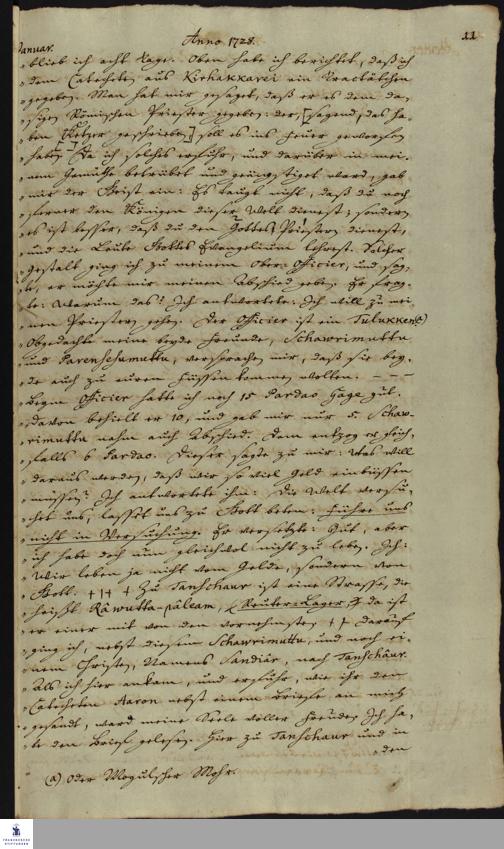 11
Anno 1728.
Januar.
blieb ich acht Tage. Oben habe ich berichtet, daß ich
dem Catecheten aus Kirhakkarei ein Tractätchen
gegeben. Man hat mir gesaget, daß er es dem da-
sigen Römischen Priester gegeben: der, [sagend, das ha-
ben Ketzer geschrieben] soll es ins Feuer geworfen
haben. Da ich solches erfuhr, und darüber in mei-
nem Gemüthe betrübet und geängstiget ward, gab
mir der Geist ein: Es taugt nicht, daß du noch
ferner den Königen dieser Welt dienest; sondern
es ist besser, daß du den Gottes Priestern dienest,
und die Leute Gottes Evangelium lehrest. Solcher
gestalt ging ich zu meinem Ober-Officier, und sag-
te, er möchte mir meinen Abschied geben. Er frag-
te: Warum das? Ich antwortete: Ich will zu mei-
nen Priestern gehen. Der Officier ist ein Tulukken (a)
Obgedachte meine beyde Freunde, Schawrimuttu
und Parenschamuttu, versprachen mir, daß sie bey-
de auch zu euren Füssen kommen wolten. – –
Beym Officier hatte ich noch 15 Pardao Gage gut.
Davon behielt er 10, und gab mir nur 5. Schaw-
rimuttu nahm auch Abschied. Dem entzog er gleich-
falls 6 Pardao. Dieser sagte zu mir: Was will
daraus werden, daß wir so viel Geld einbüssen
müssen? Ich antwortete ihm: Die Welt versu-
chet uns, lasset uns zu Gott beten: Führe uns
nicht in Versuchung. Er versetzte: Gut, aber
ich habe doch nun gleichwol nicht zu leben. Ich:
Wir leben ja nicht vom Gelde, sondern von
Gott. +++ + Zu Tanschaur ist eine Strasse, die
heißt Râwutta-pâleam, (Reuter-Lager) da ist
er einer mit von den vornehmsten ++ Darauf
ging ich, nebst diesem Schawrimuttu, und noch ei-
nem Christen, Namens Sandiâr, nach Tanschâur.
Als ich hier ankam, und erfuhr, wie ihr den
Catecheten Aaron nebst einem Briefe an mich
gesandt, ward meine Seele voller Freuden. Ich ha-
be den Brief gelesen. Hier zu Tanschaur und in
den
(a) Oder Mogulscher Mohr.
FRANCKESCHE
STIFTUNGEN